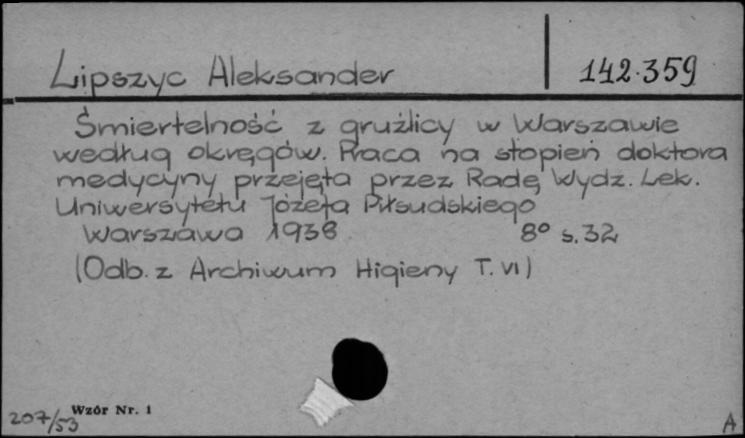 Lipszyc Aleksander 142.359
Śmiertelność z gruźlicy w Warszawie
według okręgów. Praca na stopień doktora
medycyny przejęta przez Radę Wydz. Lek.
Uniwersytetu Józefa Piłsudskiego
Warszawa 1938 8° s. 32
(Odb. z Archiwum Higieny T. VI)
Wzór Nr. 1
207/53 A